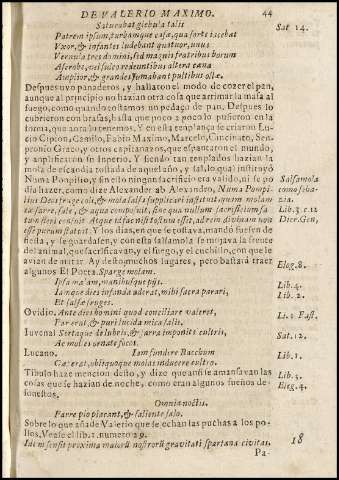 DE VALERIO MAXIMO. 44
Saturabat glebula talis
Sat 14.
Patrem ipsum, turbamque casæ, qua fœta iacebat
Vxor, & infantes ludebant quatuor, unus
Vernula tres domini, sed magnis fratribus horum
A scrobe, vel sulco redeuntibus altera cœna
Amplior, & grandes fumabant pultibus ollæ.
Despues uvo panaderos, y hallaron el modo de cozer el pan,
aunque al principio no hazian otra cosa que arrimar la masa al
fuego, como quando tostamos un pedaço de pan. Despues lo
cubrieron con brasas, hasta que poco a poco lo pusieron en la
forma, que aora lo tenemos. Y en esta templança se criaron Lu-
cio Cipion, Camilo, Fabio Maximo, Marcelo, Cincinato, Sem-
pronio Graco, y otros capitanazos, que espantaron el mundo,
y amplificaron su Imperio. Y siendo tan templados hazian la
mola de escandia tostada de aquel año, y sal, lo qual instituyó
Numa Pompilio, y sin ello ningun sacrificio era valido, ni se po
Salsamola
dia hazer, como dize Alexander ab Alexandro, Numa Pompi-
como se ha-
lius Deos fruge coli, & mola salsa supplicari instituit quem molam
zia.
ex farre, sale, & aqua composuit, sine qua nullum sacrificium ra-
Lib. 3. c 12
tum fieri censuit. Atque id far nisi tostum esset, ad rem divinam non
Dier. Gen,
esse purum statuit. Y los dias, en que se tostava, mandò fuesen de
fiesta, y se guardasen, y con esta salsamola se mojava la frente
del animal, que sacrificavan, y el fuego, y el cuchillo, con que le
avian de matar. Ay desto muchos lugares, pero bastará traer
algunos El Poeta. Sparge molam.
Eglog. 8.
Ipsa molam, manibusque pijs.
Lib. 4.
Iamque dies infanda aderat, mihi sacra parari,
Lib. 2.
Et salsæ fruges.
Ovidio. Ante deos homini quod conciliare valeret,
Li. 1 Fast.
Far erat, & puri lucida mica salis.
Iuvenal Sertaque delubris, & farra imponite cultris,
Sat. 12.
Ac molles ornate focos.
Lucano. Iam fundere Bacchum
Lib. 1.
Cœperat, obliquoque molas inducere cultro.
Tibulo haze mencion desto, y dize que ansi se amansavan las
Lib. 3.
cosas que se hazian de noche, como eran algunos sueños de-
Eleg. 4.
funestos.
Omnia noctis.
Farre pio placant, & saliente salo.
Sobre lo que añade Valerio que se echan las puchas a los po-
llos, Vease el lib. 1. numero 29.
Idem sensit proxima maiorũ nostrorũ gravitati spartana civitas.
18
Pa-